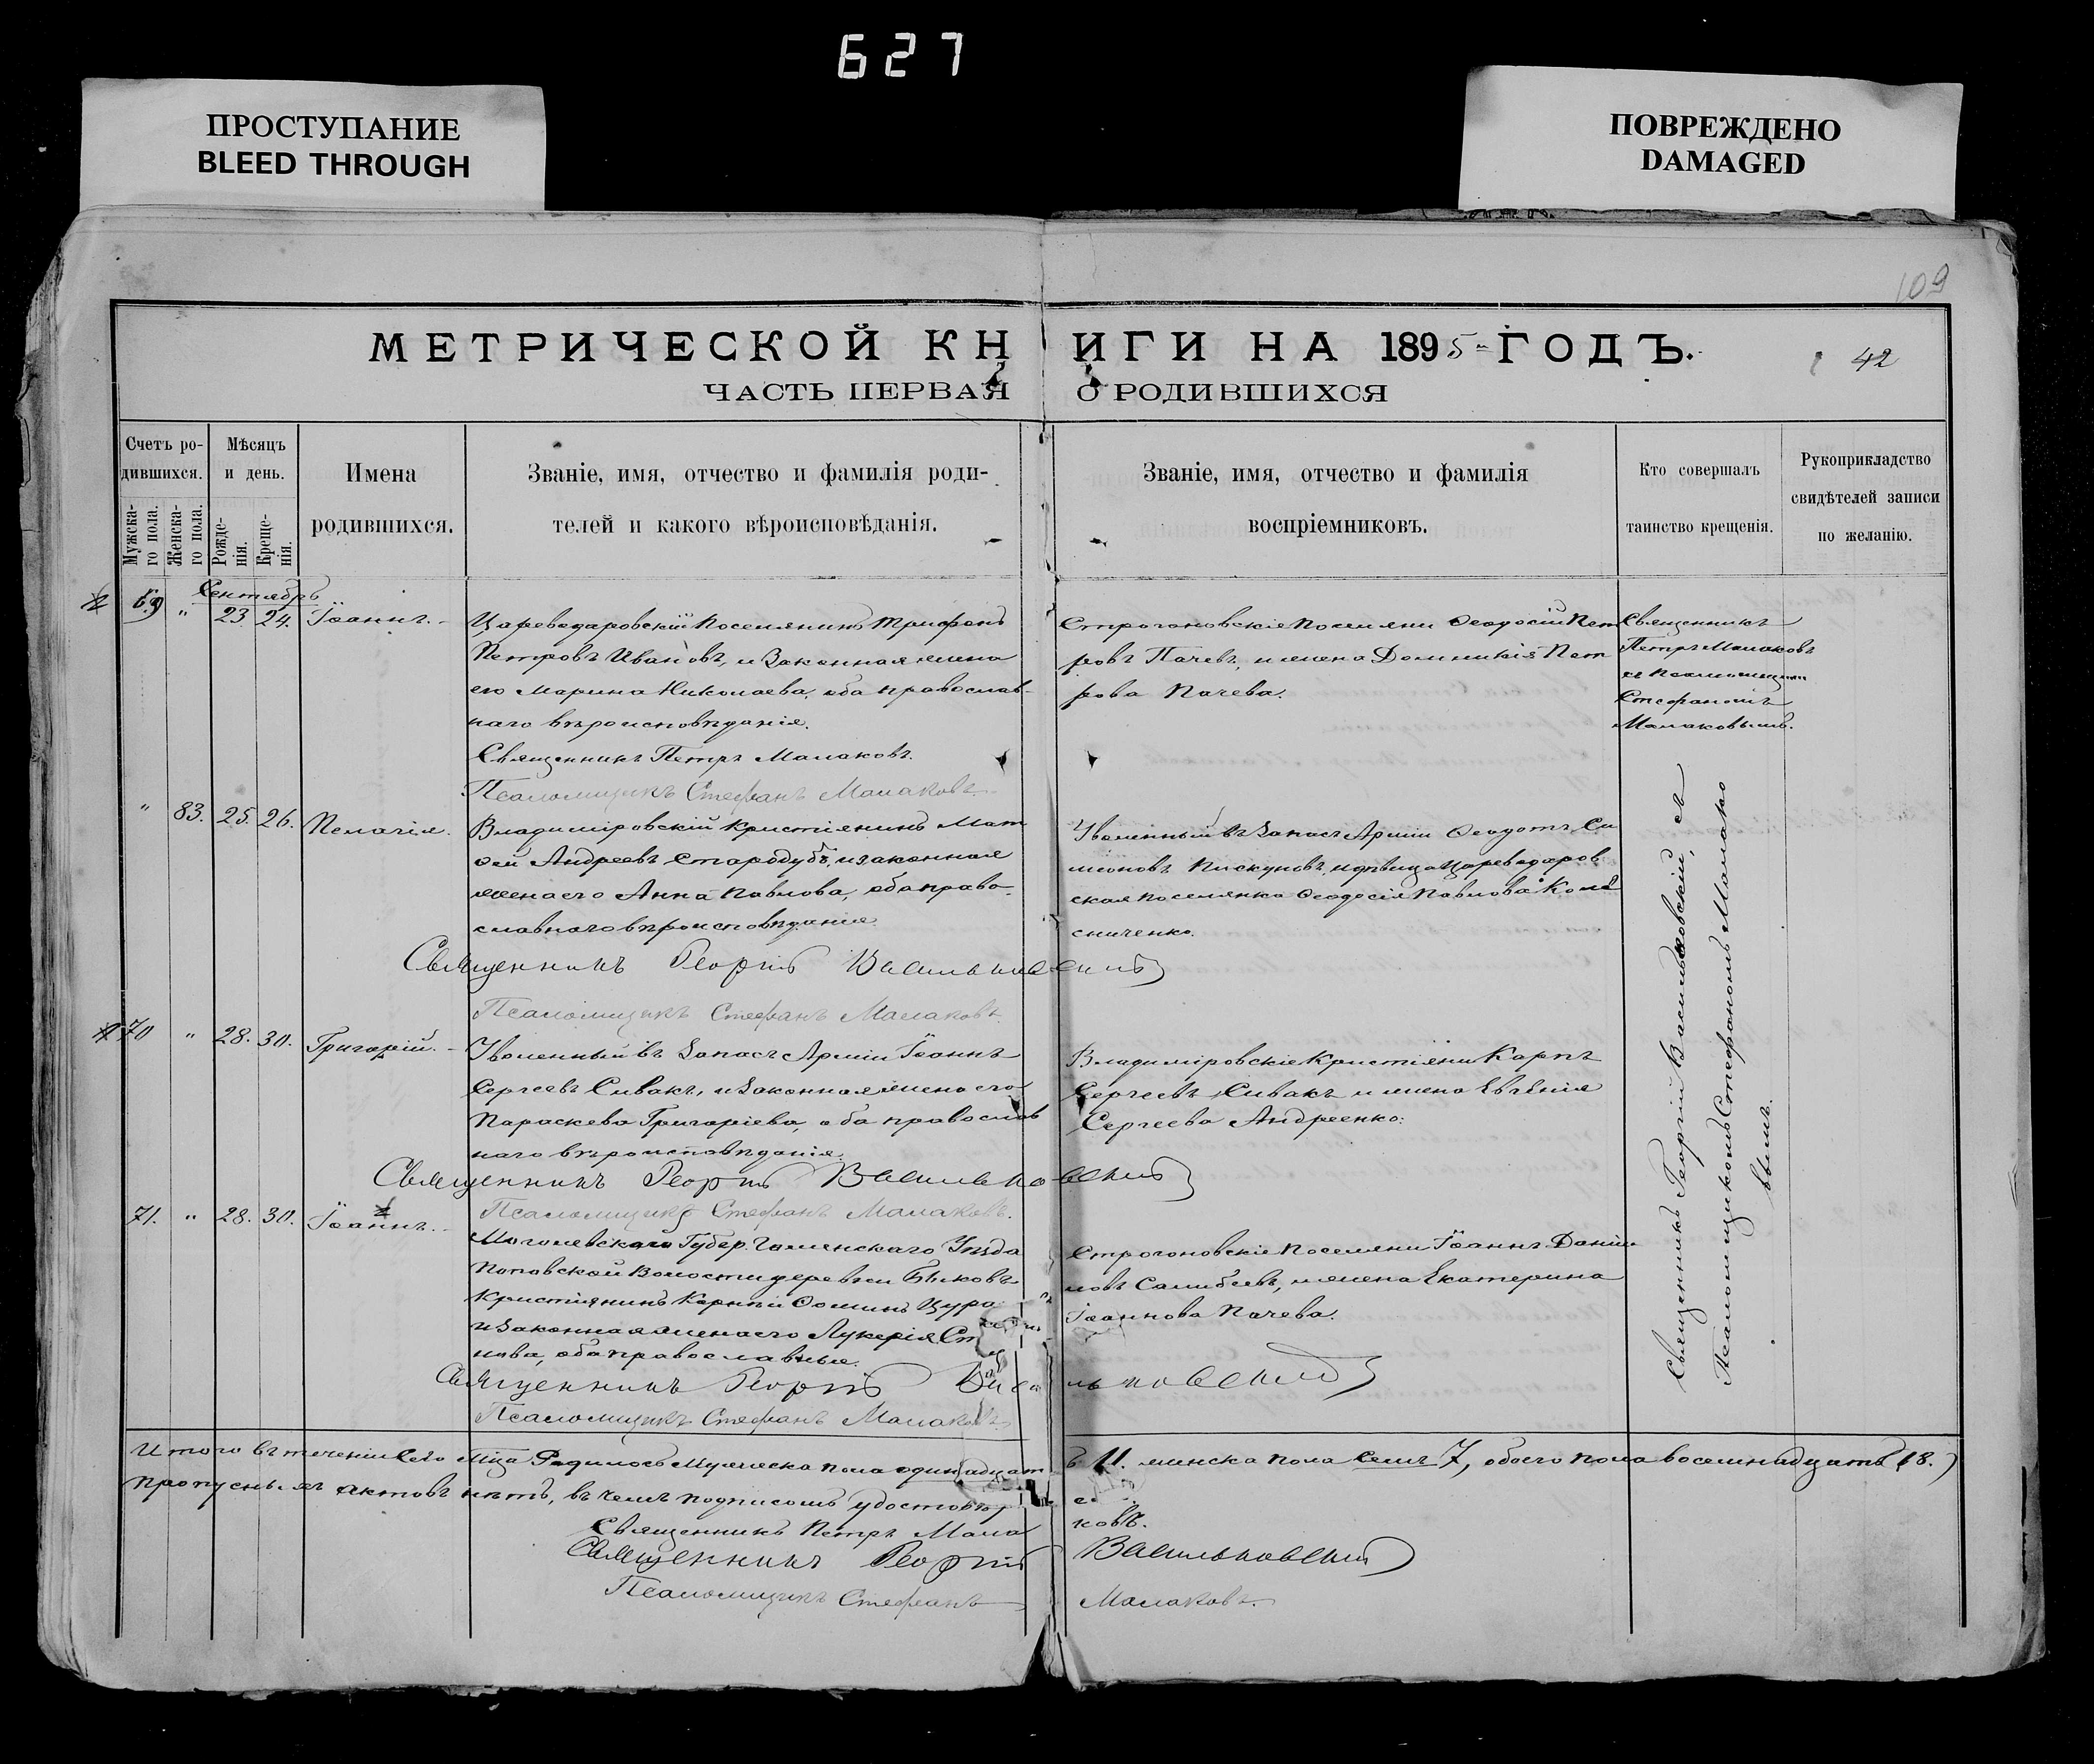 627
ПРОСТУПАНИЕ
BLEED THROUGH
ПОВРЕЖДЕНО
DAMAGED
109
МЕТРИЧЕСКОЙ КНИГИ НА 1895 ГОДЪ.
42
ЧАСТЬ ПЕРВАЯ О РОДИВШИХСЯ
Счетъ ро-
дившихся.
Мужска-
го пола.
Женска-
го пола.
Мѣсяцъ
и день.
Рожде-
нія.
Креще-
нія.
Имена
родившихся.
Званіе, имя, отчество и фамилія роди-
телей и какого вѣроисповѣданія.
Званіе, имя, отчество и фамилія
воспріемниковъ.
Кто совершалъ
таинство крещенія.
Рукоприкладство
свидѣтелей записи
по желанію.
Сентябрь
69 " 23. 24. Іоаннъ.
Царевдаровскій поселянинъ Трифонъ
Петровъ Ивановъ, и законная жена
его Марина Николаева, оба православ-
наго вѣроисповѣданія.
Священникъ Петръ Малаковъ.
Псаломщикъ Стефанъ Малаковъ.
Строгоновскіе поселяни Ѳеодосій Пет
ровъ Пачевъ, и жена Домникія Пет
рова Пачева.
Священникъ
Петръ Малаковъ
съ псаломщиком
Стефаномъ
Малаковымъ.
" 83. 25. 26. Пелагія.
Владиміровскій кристіянинъ Мат
ѳей Андреевъ Стародубъ, и законная
жена его Анна Павлова, оба право-
славнаго вѣроисповѣданія.
Священникъ Георгій Васильковскій
Псаломщикъ Стефанъ Малаковъ.
Уволенный въ запасъ Арміи Ѳеодотъ Си
меоновъ Пискуновъ, и дѣвица Царевдаров
ская поселянка Ѳеодосія Павлова Коле
сниченко.
70 " 28. 30. Григорій.
Уволенный въ запасъ Арміи Іоаннъ
Сергеевъ Сивакъ, и законная жена его
Параскева Григоріева, оба православ
наго вѣроисповѣданія.
Священникъ Георгій Васильковскій
Псаломщикъ Стефанъ Малаковъ.
Владиміровскіе кристіяни Карпъ
Сергеевъ Сивакъ и жена Евгенія
Сергеева Андреенко.
71. " 28. 30. Іоаннъ.
Могилевскаго Губер. Гомельскаго Уѣзда
Поповской волости деревни Быковъ
кристіянинъ Корній Ѳоминъ Цура
и законная жена его Лукерія
нова, оба православные.
Священникъ Георгій Васильковскій
Псаломщикъ Стефанъ Малаковъ
Строгоновскіе поселяни Іоаннъ Даніи
ловъ и жена Екатерина
Іоаннова Пачева.
Священникъ Георгій Васильковскій, съ
Псаломщикомъ Стефаномъ Малако
вымъ.
Итого въ теченіи сего Мца Родилось Мужеска пола одинадцать 11. женска пола семь 7, обоего пола восемнадцать (18.)
Пропускныхъ актовъ нѣтъ, въ чемъ подписомъ удостовѣр
Священникъ Петръ Малаковъ.
Священникъ Георгій Васильковскій
Псаломщикъ Стефанъ Малаковъ.